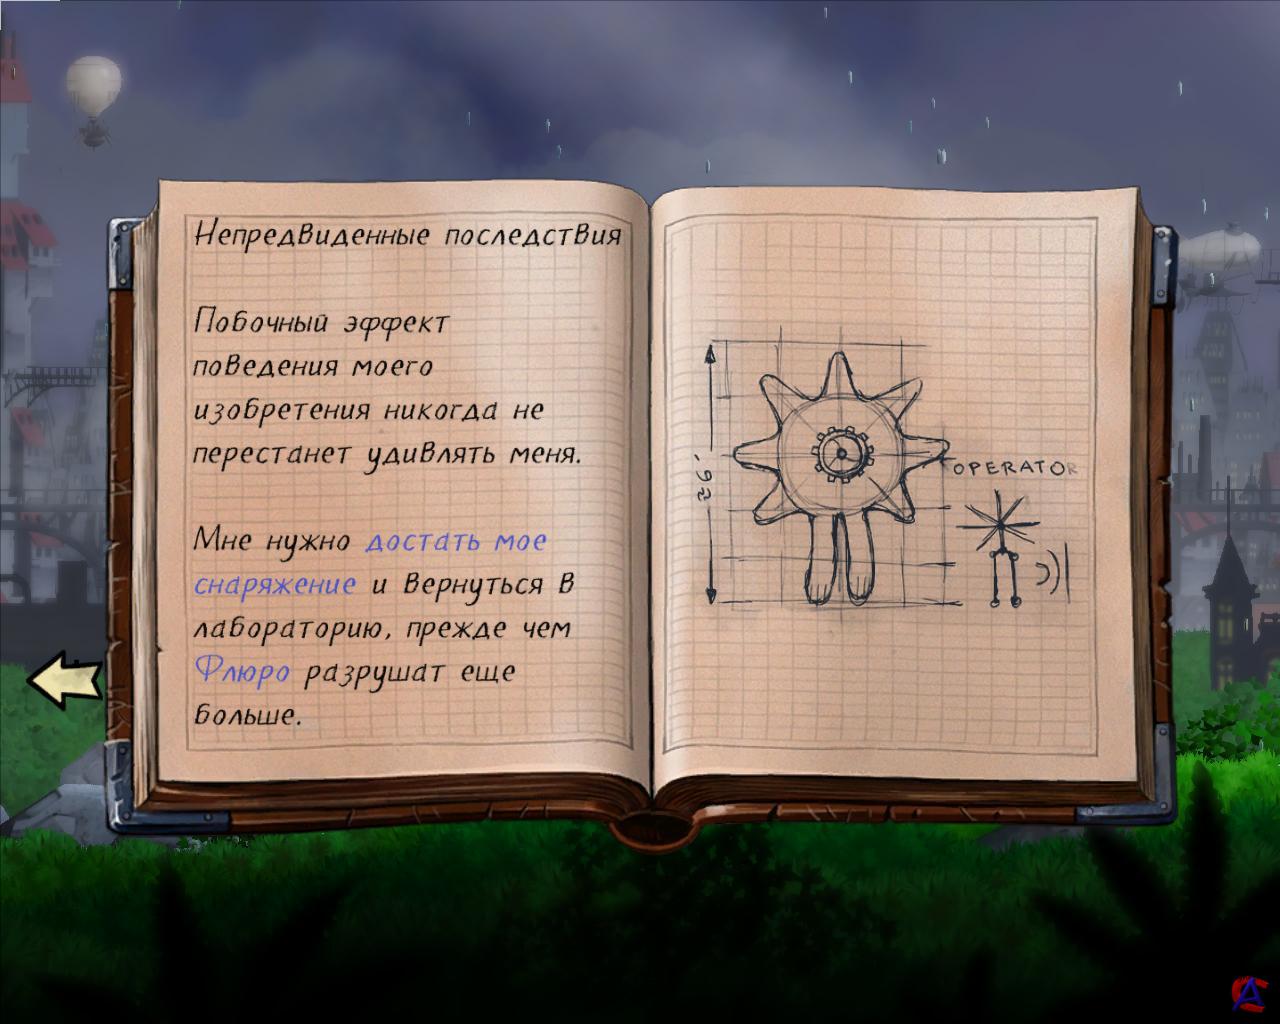 Непредвиденные последствия
Побочный эффект
поведения моего
изобретения никогда не
перестанет удивлять меня.
Мне нужно достать мое
снаряжение и вернуться в
лабораторию, прежде чем
Флюро разрушат еще
больше.
OPERATOR